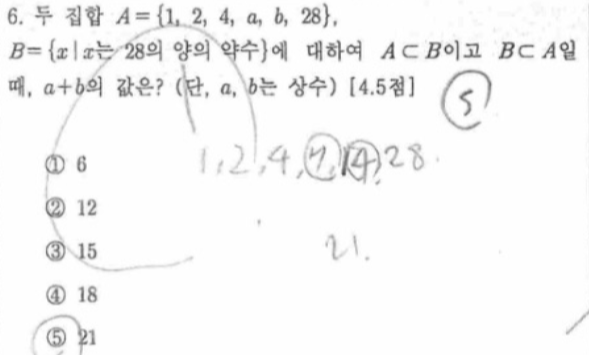 6. 두 집합 A={1, 2, 4, a, b, 28},
B={x|x는 28의 양의 약수}에 대하여 A⊂B이고 B⊂A일
때, a+b의 값은? (단, a, b는 상수) [4.5점]
5
① 6
1, 2, 4, 7, 14, 28.
② 12
③ 15
21.
④ 18
⑤ 21